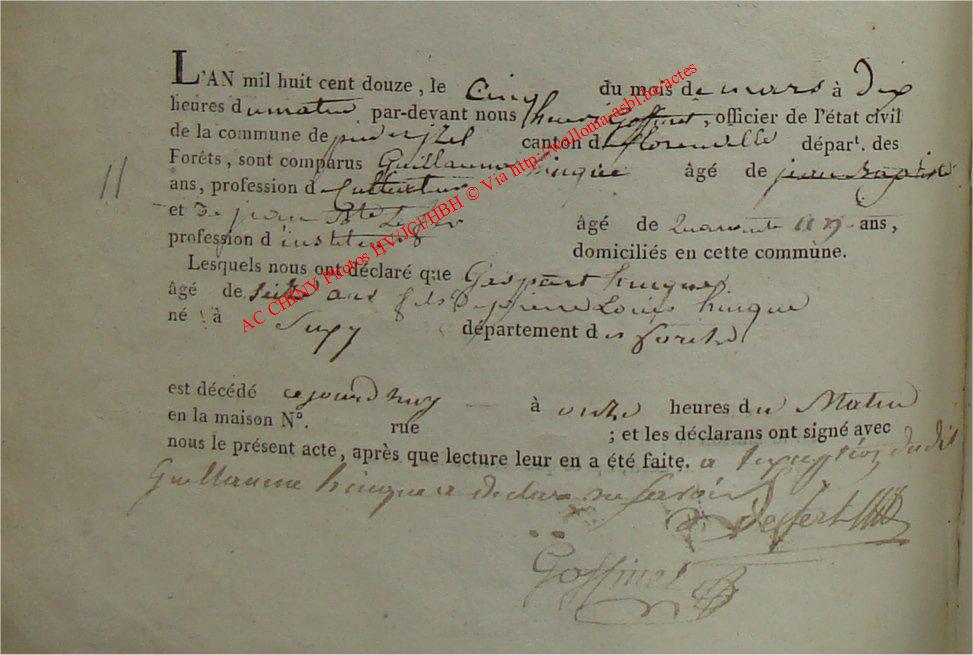 L'AN mil huit cent douze, le Cinq du mois de mars à Dix
heures du matin par-devant nous henri Goffinet, officier de l'état civil
de la commune de canton de florenville départ. des
11
Forêts, sont comparus Guillaume hinque âgé de jean Baptiste
ans, profession de Cultivateur
et De jean Bte âgé de Quarante ans,
profession d instituteur domiciliés en cette commune.
Lesquels nous ont déclaré que Gaspart hinque
âgé de seize ans fils De pierre Louis hinque
né à Suxy département des forets
est décédé cejourdhuy à onze heures du Matin
en la maison N°. rue ; et les déclarans ont signé avec
nous le présent acte, après que lecture leur en a été faite. a l'exception dudit
Guillaume hinque a declaré ne savoir
Goffinet
AC CHINY Photos HV/JCF/HBH © Via http://walloma-asbl.be/actes